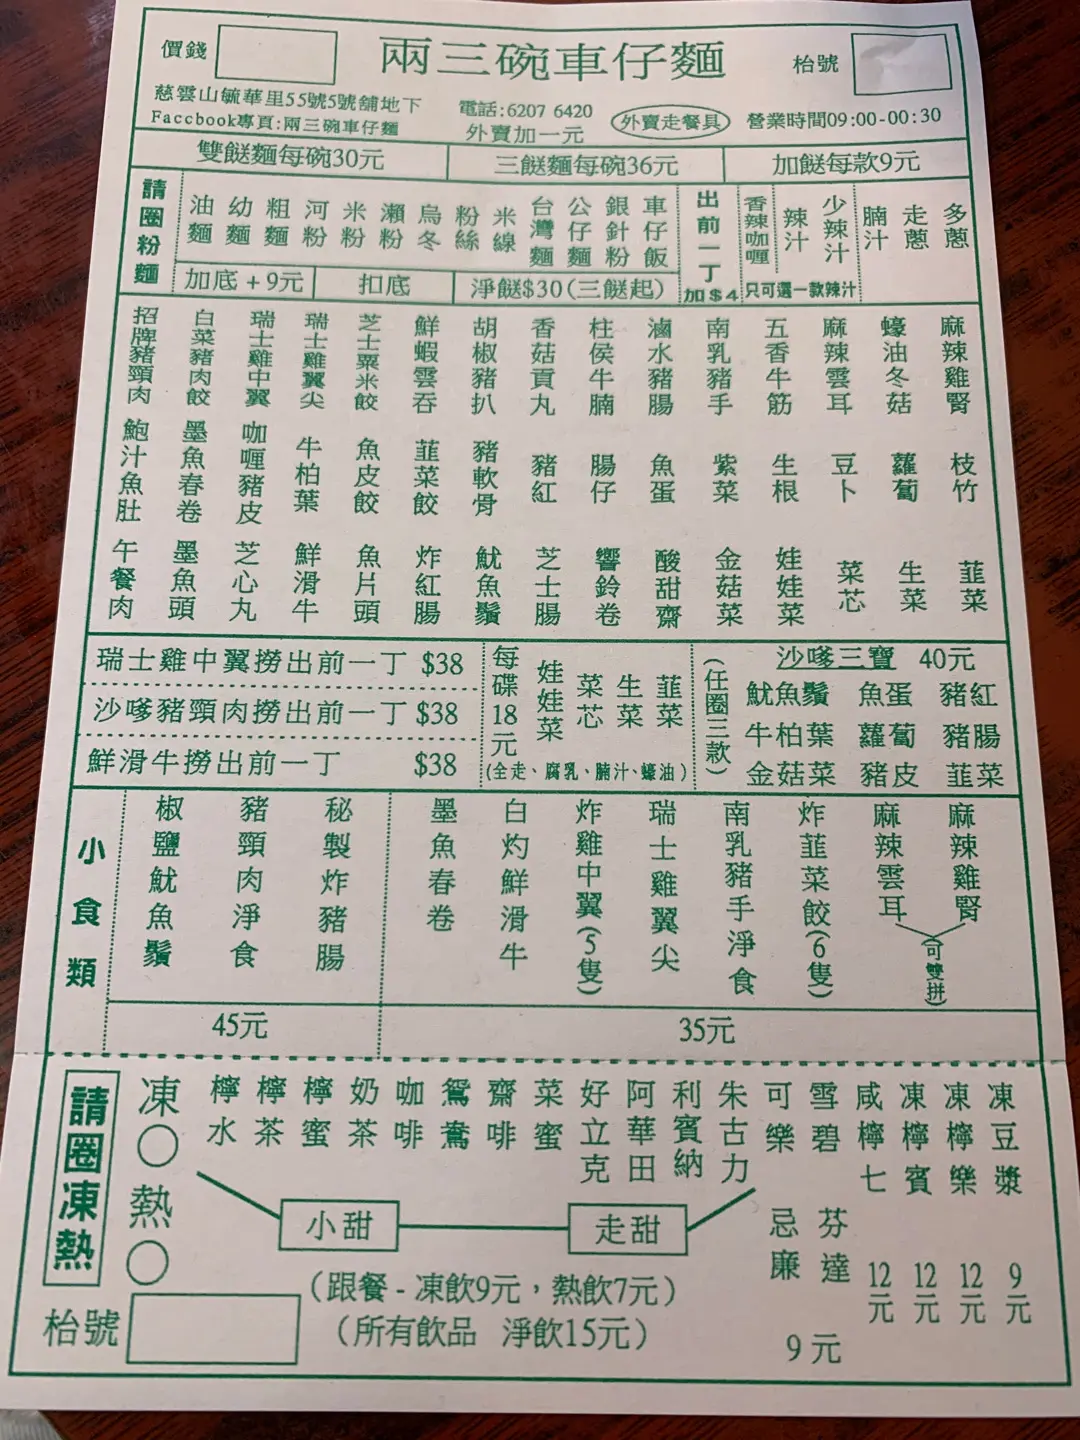 價錢
兩三碗車仔麵
枱號
慈雲山毓華里55號5號舖地下
電話:6207 6420
外賣走餐具
營業時間09:00-00:30
Faccbook專頁:兩三碗車仔麵
外賣加一元
雙餸麵每碗30元
三餸麵每碗36元
加餸每款9元
請圈粉麵
油麵
幼麵
粗麵
河粉
米粉
瀨粉
烏冬
粉絲
米線
台灣麵
公仔麵
銀針粉
車仔飯
出前一丁加$4
香辣咖喱
辣汁
少辣汁
只可選一款辣汁
腩汁
走蔥
多蔥
加底+9元
扣底
淨餸$30(三餸起)
招牌豬頸肉
白菜豬肉餃
瑞士雞中翼
瑞士雞翼尖
芝士粟米餃
鮮蝦雲吞
胡椒豬扒
香菇貢丸
柱侯牛腩
滷水豬腸
南乳豬手
五香牛筋
麻辣雲耳
蠔油冬菇
麻辣雞腎
鮑汁魚肚
墨魚春卷
咖喱豬皮
牛柏葉
魚皮餃
韮菜餃
豬軟骨
豬紅
腸仔
魚蛋
紫菜
生根
豆卜
蘿蔔
枝竹
午餐肉
墨魚頭
芝心丸
鮮滑牛
魚片頭
炸紅腸
魷魚鬚
芝士腸
響鈴卷
酸甜齋
金菇菜
娃娃菜
菜芯
生菜
韮菜
瑞士雞中翼撈出前一丁 $38
沙嗲豬頸肉撈出前一丁 $38
鮮滑牛撈出前一丁 $38
每碟18元
娃娃菜
菜芯
生菜
韮菜
(全走、腐乳、腩汁、蠔油)
(任圈三款)
沙嗲三寶 40元
魷魚鬚 魚蛋 豬紅
牛柏葉 蘿蔔 豬腸
金菇菜 豬皮 韮菜
小食類
椒鹽魷魚鬚
豬頸肉淨食
秘製炸豬腸
墨魚春卷
白灼鮮滑牛
炸雞中翼(5隻)
瑞士雞翼尖
南乳豬手淨食
炸韮菜餃(6隻)
麻辣雲耳
麻辣雞腎
(可雙拼)
45元
35元
請圈凍熱
凍
熱
檸水
檸茶
檸蜜
奶茶
咖啡
鴛鴦
齋啡
菜蜜
好立克
阿華田
利賓納
朱古力
可樂
雪碧
忌廉
芬達
9元
咸檸七
12元
凍檸賓
12元
凍檸樂
12元
凍豆漿
9元
小甜
走甜
(跟餐-凍飲9元，熱飲7元)
(所有飲品 淨飲15元)
枱號